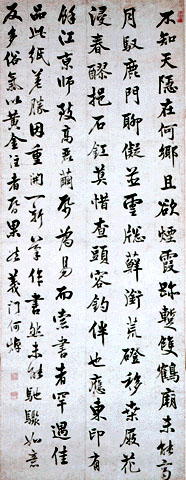 不知天隱在何鄉且欲煙霞跡暫雙鶴廟未能齊
月馭鹿門聊儗並雲牕蘚銜荒磴移桑屐花
浸春醪挹石缸莫惜查頭容釣伴也應東印有
餘江京師致高麗繭為易而索書者罕遇佳
品此紙差勝因重開一新筆作書然未能馳騁如意
反多俗氣以黃金注者昏果然義門何焯